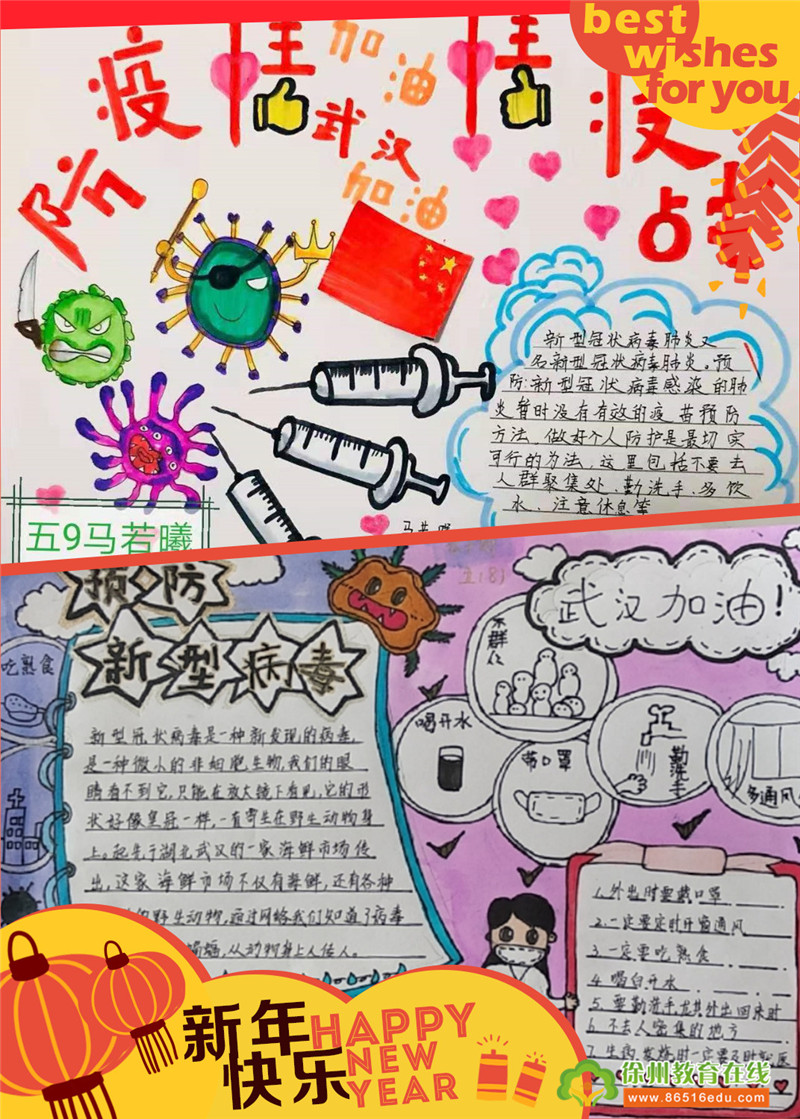 best
wishes
for you
防疫情
加油
武汉
加油
情疫战
新型冠状病毒肺炎又
名新型冠状病毒肺炎。预
防:新型冠状病毒感染的肺
炎暂时没有有效的疫苗预防
方法,做好个人防护是最切实
可行的方法,这里包括不要去
人群聚集处、勤洗手、多饮
水、注意休息等
五9马若曦
马若曦
预防
新型病毒
吃熟食
新型冠状病毒是一种新发现的病毒,
是一种微小的非细胞生物,我们的眼
睛看不到它,只能在放大镜下看见,它的形
状好像皇冠一样,一直寄生在野生动物身
上。起先于湖北武汉的一家海鲜市场传
出,这家海鲜市场不仅有海鲜,还有各种
野生动物,通过网络我们知道了病毒
蝙蝠,从动物身上人传人。
武汉加油!
喝开水
带口罩
勤洗手
多通风
1.外出时要戴口罩
2.一定要定时开窗通风
3.一定要吃熟食
4.喝白开水
5.要勤洗手尤其外出回来时
6.不去人密集的地方
7.生病、发烧时一定要及时就医
新年
快乐
HAPPY
NEW
YEAR
徐州教育在线
www.86516edu.com